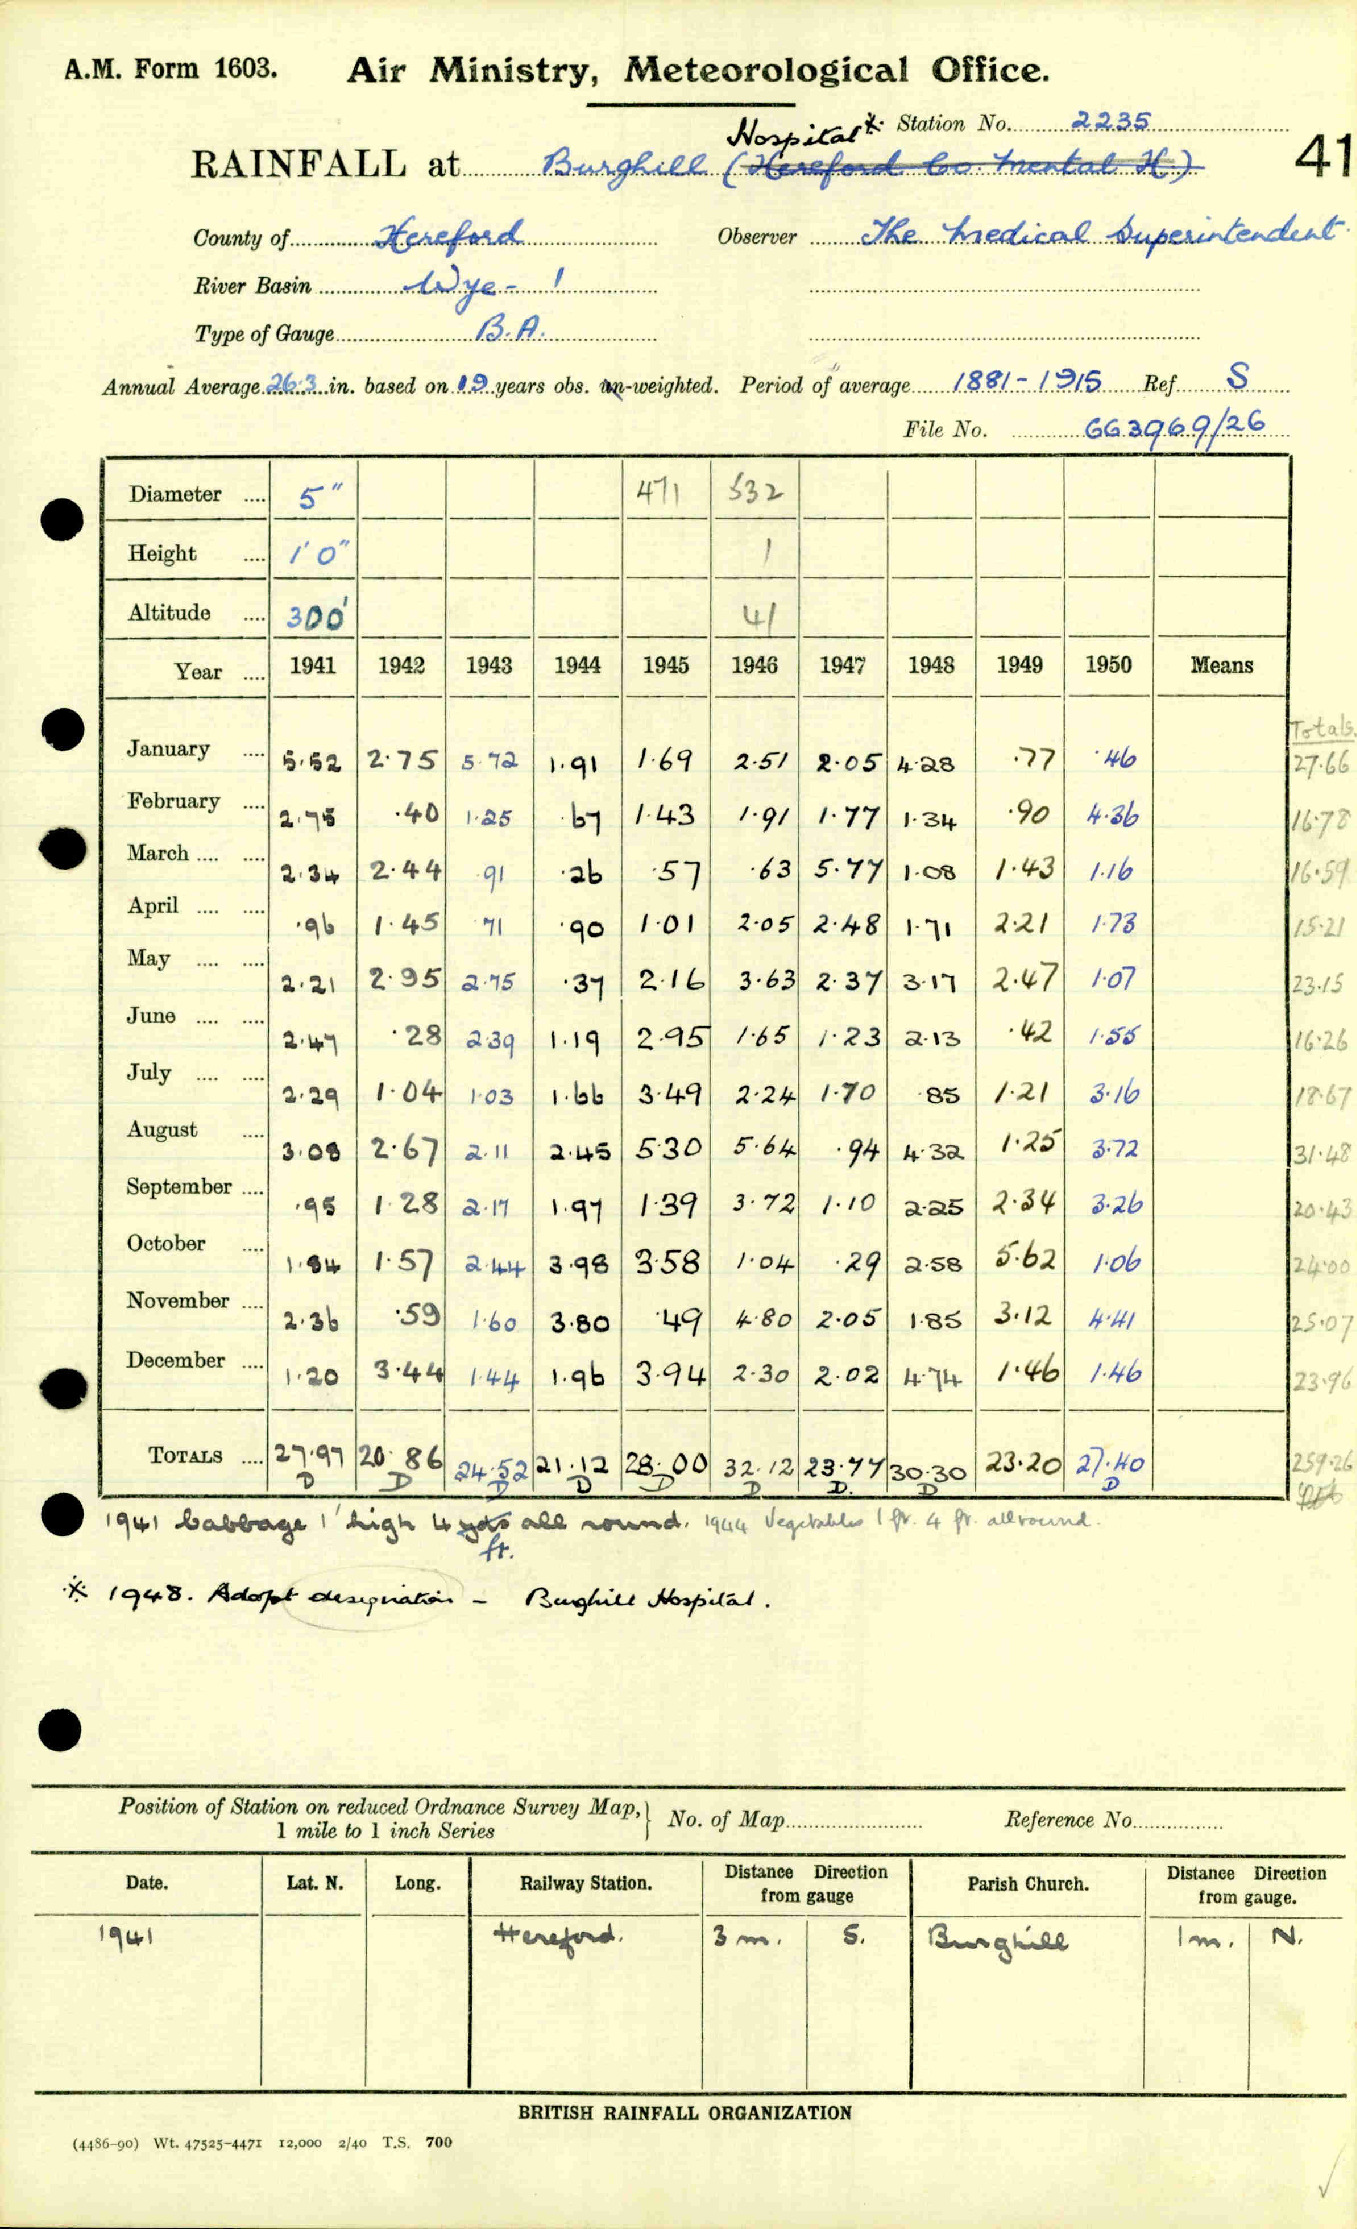 A.M. Form 1603. Air Ministry, Meteorological Office.
Hospital * Station No. 2235
RAINFALL at Burghill (Hereford Co. Mental H.) 41
County of Hereford Observer The Medical Superintendent.
River Basin Wye - 1
Type of Gauge B.A.
Annual Average 26.3 in. based on 19 years obs. un-weighted. Period of average 1881-1915 Ref. S
File No. 663969/26
Diameter .... 5" 471 532
Height .... 1' 0" 1
Altitude .... 300' 41
Year .... 1941 1942 1943 1944 1945 1946 1947 1948 1949 1950 Means
Totals.
January .... 5.52 2.75 5.72 1.91 1.69 2.51 2.05 4.28 .77 .46 27.66
February .... 2.75 .40 1.25 .67 1.43 1.91 1.77 1.34 .90 4.36 16.78
March .... .... 2.34 2.44 .91 .26 .57 .63 5.77 1.08 1.43 1.16 16.59
April .... .... .96 1.45 .71 .90 1.01 2.05 2.48 1.71 2.21 1.73 15.21
May .... .... 2.21 2.95 2.75 .37 2.16 3.63 2.37 3.17 2.47 1.07 23.15
June .... .... 2.47 .28 2.39 1.19 2.95 1.65 1.23 2.13 .42 1.55 16.26
July .... .... 2.29 1.04 1.03 1.66 3.49 2.24 1.70 .85 1.21 3.16 18.67
August .... 3.08 2.67 2.11 2.45 5.30 5.64 .94 4.32 1.25 3.72 31.48
September .... .95 1.28 2.17 1.97 1.39 3.72 1.10 2.25 2.34 3.26 20.43
October .... 1.84 1.57 2.44 3.98 3.58 1.04 .29 2.58 5.62 1.06 24.00
November .... 2.36 .59 1.60 3.80 .49 4.80 2.05 1.85 3.12 4.41 25.07
December .... 1.20 3.44 1.44 1.96 3.94 2.30 2.02 4.74 1.46 1.46 23.96
TOTALS .... 27.97 20.86 24.52 21.12 28.00 32.12 23.77 30.30 23.20 27.40 259.26
D D D D D D D. D D
1941 Cabbage 1' high 4 yds all round. 1944 Vegetables 1 ft. 4 ft. all round.
ft.
* 1948. Adopt designation - Burghill Hospital.
Position of Station on reduced Ordnance Survey Map,} No. of Map Reference No.
1 mile to 1 inch Series
Date. Lat. N. Long. Railway Station. Distance Direction from gauge Parish Church. Distance Direction from gauge.
1941 Hereford. 3 m. S. Burghill 1 m. N.
BRITISH RAINFALL ORGANIZATION
(4486-90) Wt. 47525-4471 12,000 2/40 T.S. 700